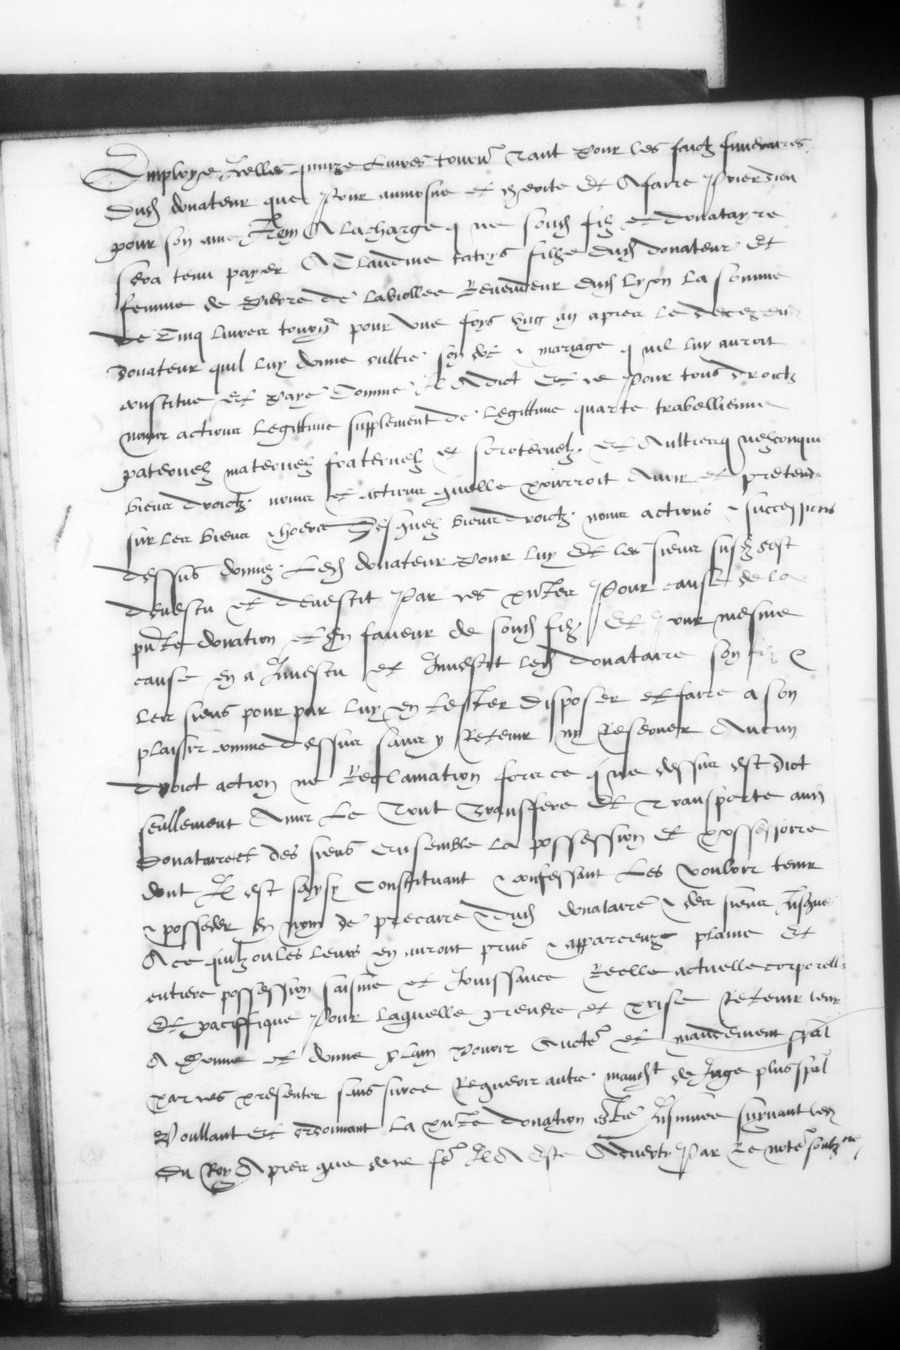 Employe icelles quinze livres tourn̄ tant pour les fraictz funeraires
dud donateur que pour aumosne et et a faire prier dieu
pour son ame Item A la charge q̄ ne soud filz et donatayre
sera tenu payer A Claudine filhe dud donateur et
femme de pierre de laviollee Revendeur dud lyon la somme
de Cinq livres tourn̄ pour une foys ung an apres le decez dud
donateur quil luy donne oultre son dot & mariage q̄ uil luy auroit
constitue et paye Comme Il A dict Et ce pour tous droictz
noms actions legittime supplement de legittime quarte trabellienne
paternelz maternelz fraternelz et sororernelz Et Aultres quelzconques
biens droictz noms et actions quelle pourroit Avoir et pretendre
sur les biens & hoerie Desquelz biens droictz noms actions & successions
dessus donnez Led donateur pour luy Et les siens susd sest
devestu et devestit Par ces pn̄tes Pour cause de la
pn̄te donation et En faveur de soud filz Et pour mesme
cause en a Investu et Investit led donataire son filz &
les siens pour par luy en tester disposer et faire a son
plaisir comme dessus sans y Retenir ny Reserver Aucun
droict action ne Reclamation fors ce q̄ ue dessus est dict
seullement Ains Le Tout Transfere Et Transporte aud
donataire et des siens Ensemble la possession et possessoire
dont Il est saysy Constituant & confessant Les vouloir tenir
& posseder En nom de precaire Dud donataire & des siens Jusques
A ce quilz ou les leurs en auront prins & apparceuz plaine et
entiere possession saisine et Jouissance Reelle actuelle corporelle
Et paciffique Pour laquelle prendre et prise Retenir leur
A donne et donne plain pouvoir Aucte et mandement spāl
par ces presentes sans sur ce Requerir autre mandt de Juge plus spāl
Voullant Et ordonnant la pn̄te donation estre Insinuee suyvant led
du Roy Apres que de ce fe Il A Este Adverty Par le note soubz ne